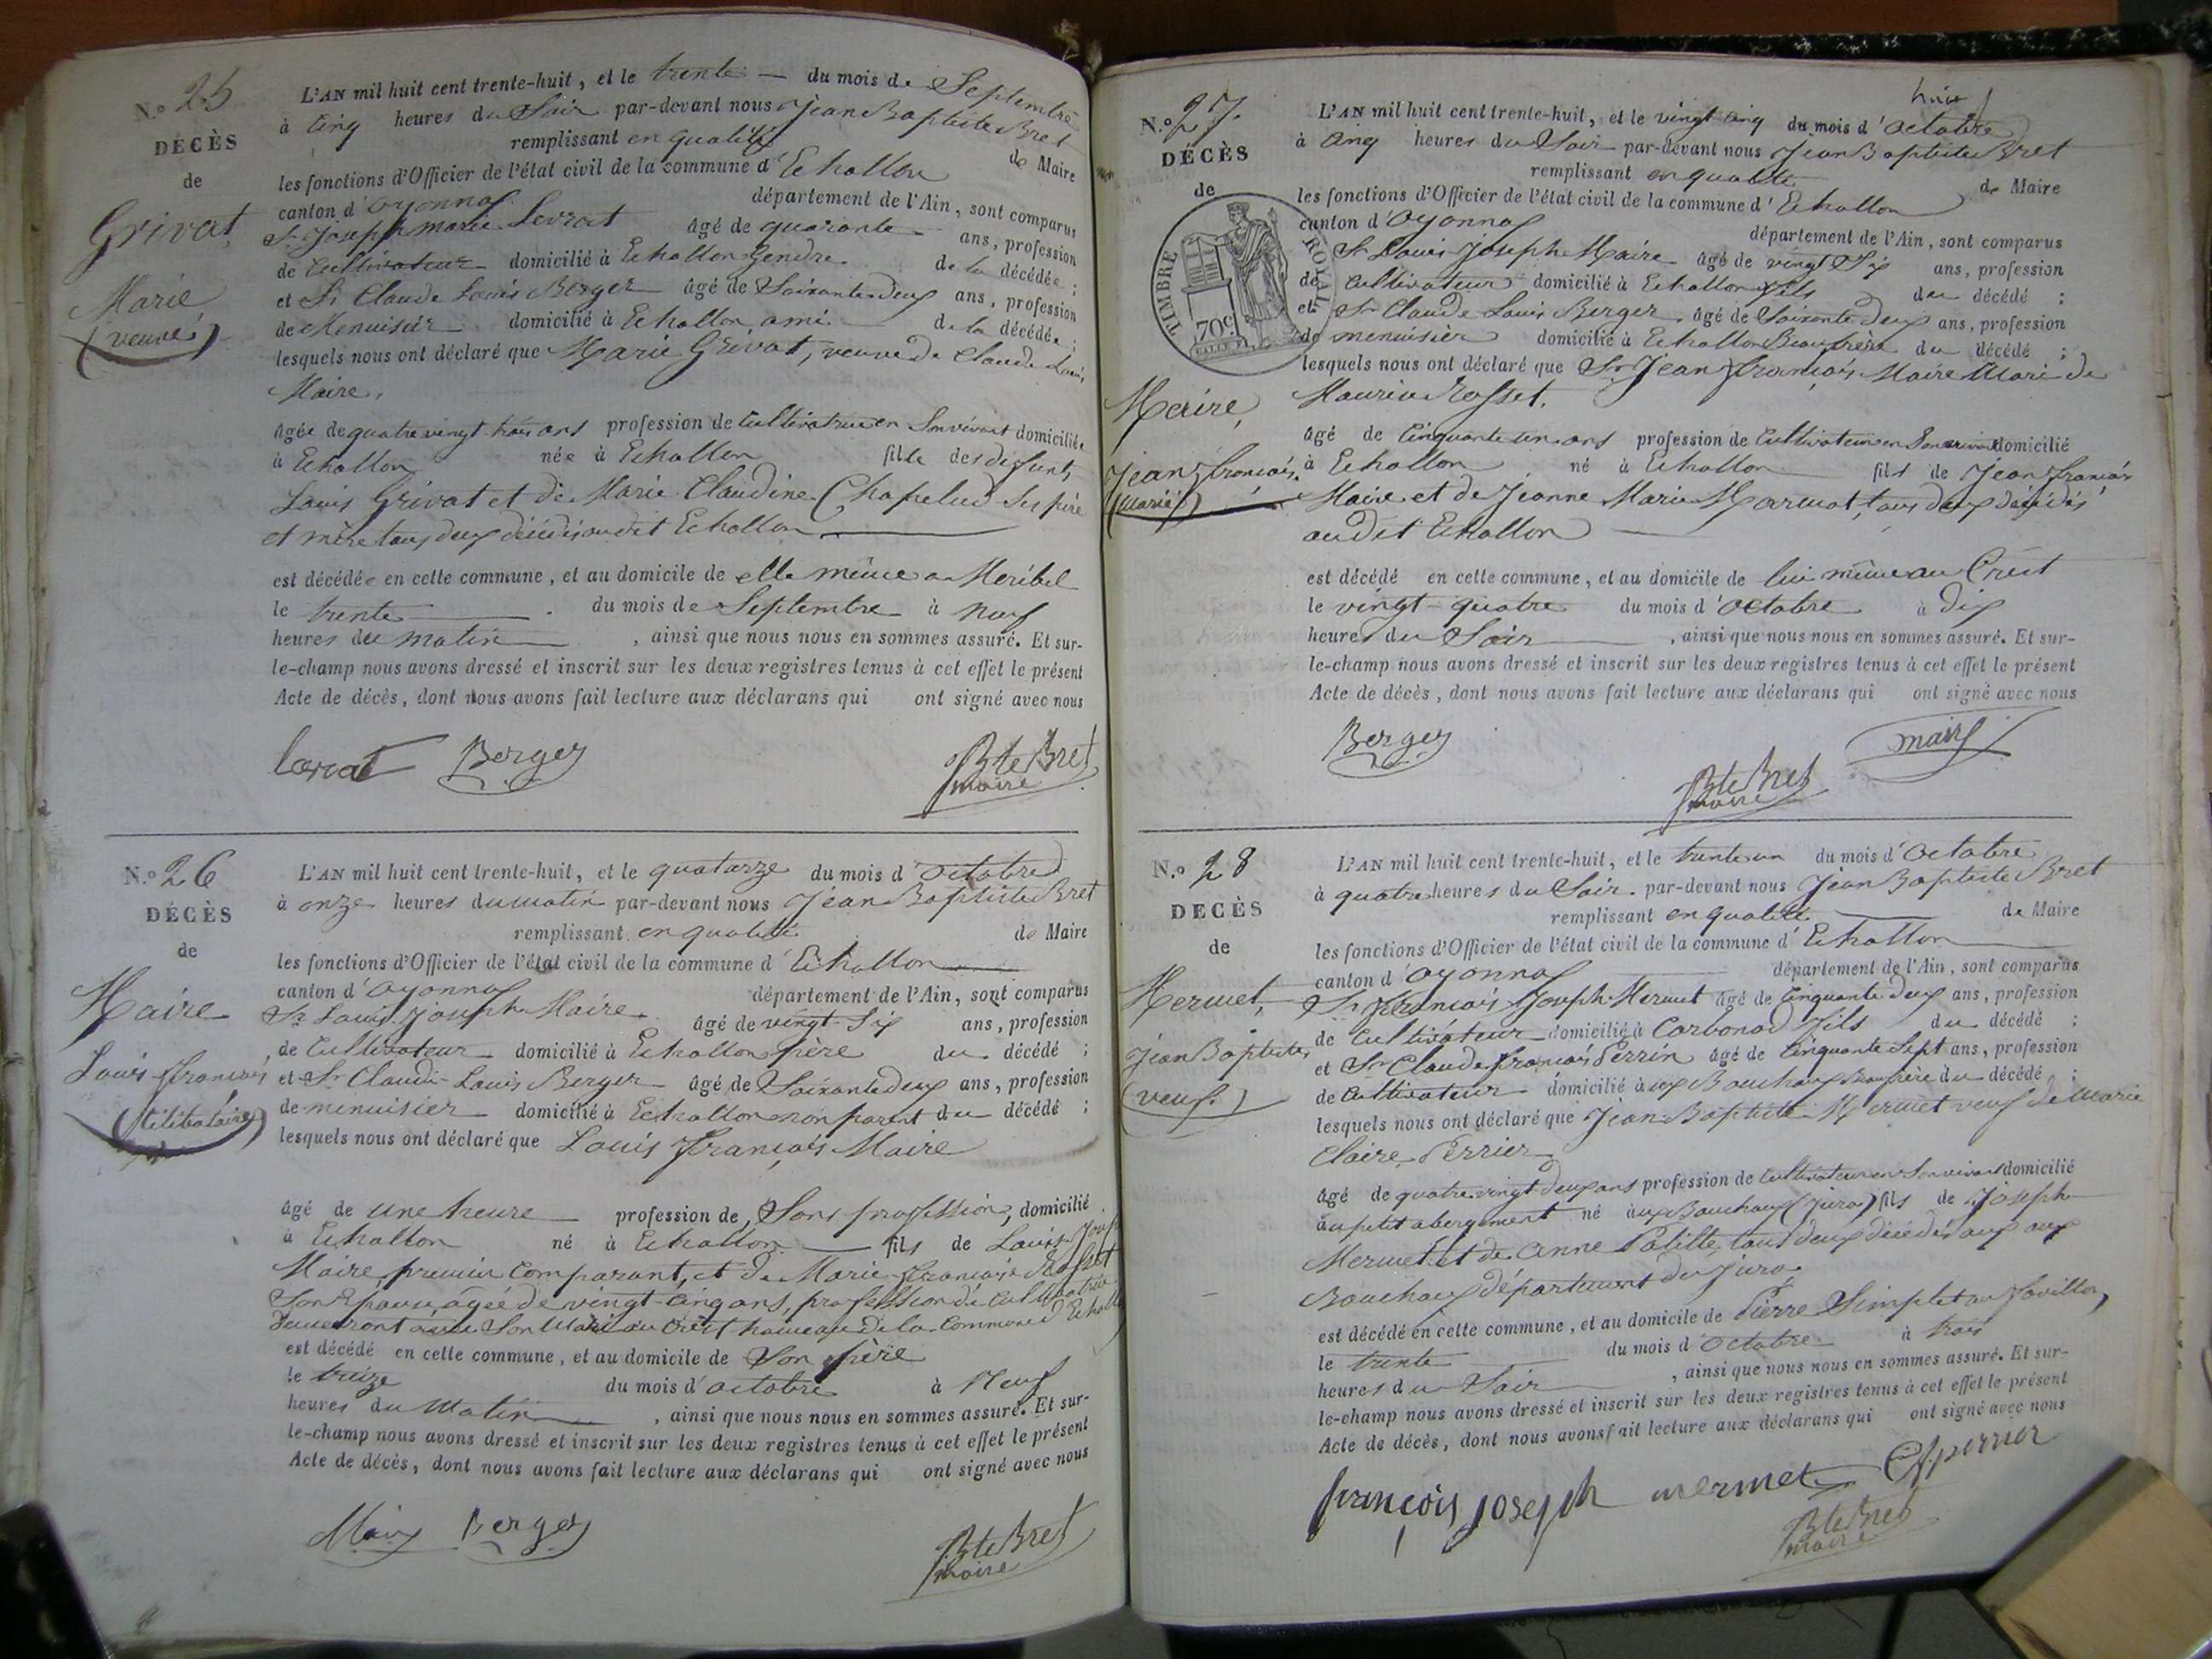 N.o 25
DÉCÈS
de
Grivat,
Marie
(veuve)
L'AN mil huit cent trente-huit, et le trente — du mois de Septembre
à cinq heures du Soir par-devant nous Jean Baptiste Bret
remplissant en qualité de Maire
les fonctions d'Officier de l'état civil de la commune d'Echallon
canton d'Oyonnax département de l'Ain, sont comparus
Sr. Joseph marie Levrat âgé de quarante ans, profession
de Cultivateur domicilié à Echallon Gendre de la décédée ;
et Sr Claude Louis Berger âgé de Soixante deux ans, profession
de Menuisier domicilié à Echallon, ami de la décédée ;
lesquels nous ont déclaré que Marie Grivat, veuve de Claude Louis
Maire,
âgée de quatre vingt trois ans profession de Cultivatrice en Son vivant domiciliée
à Echallon née à Echallon fille des defunts
Louis Grivat et de Marie Claudine Chapelud Ses père
et mère tous deux décédés audit Echallon
est décédée en cette commune, et au domicile de elle même a Meribel
le trente du mois de Septembre à neuf
heures du matin , ainsi que nous nous en sommes assuré. Et sur-
le-champ nous avons dressé et inscrit sur les deux registres tenus à cet effet le présent
Acte de décès, dont nous avons fait lecture aux déclarans qui ont signé avec nous
Levrat Berger
Bte Bret
maire
N.o 26
DÉCÈS
de
Maire
Louis François,
(Célibataire)
L'AN mil huit cent trente-huit, et le quatorze du mois d'Octobre
à onze heures du matin par-devant nous Jean Baptiste Bret
remplissant en qualité de Maire
les fonctions d'Officier de l'état civil de la commune d'Echallon
canton d'Oyonnax département de l'Ain, sont comparus
Sr Louis Joseph Maire âgé de vingt Six ans, profession
de Cultivateur domicilié à Echallon père du décédé ;
et Sr Claude Louis Berger âgé de Soixante deux ans, profession
de menuisier domicilié à Echallon non parent du décédé ;
lesquels nous ont déclaré que Louis François Maire
âgé de une heure profession de, Sans profession, domicilié
à Echallon né à Echallon fils de Louis Joseph
Maire, premier Comparant, et de Marie Françoise Rosset
Son Epouse âgée de vingt-cinq ans, profession de Cultivatrice
demeurant avec Son Mari au Crêt hameau de la Commune d'Echallon
est décédé en cette commune, et au domicile de Son père
le treize du mois d'octobre à Neuf
heures du Matin , ainsi que nous nous en sommes assuré. Et sur-
le-champ nous avons dressé et inscrit sur les deux registres tenus à cet effet le présent
Acte de décès, dont nous avons fait lecture aux déclarans qui ont signé avec nous
Maire Berger
Bte Bret
maire
N.o 27.
DÉCÈS
de
TIMBRE ROYAL
70c
Maire,
Jean François.
(Marié)
L'AN mil huit cent trente-huit, et le vingt cinq du mois d'Octobre
à Cinq heures du Soir par-devant nous Jean Baptiste Bret
remplissant en qualité de Maire
les fonctions d'Officier de l'état civil de la commune d'Echallon
canton d'Oyonnax département de l'Ain, sont comparus
Sr Louis Joseph Maire âgé de vingt Six ans, profession
de Cultivateur domicilié à Echallon fils du décédé ;
et Sr Claude Louis Berger, âgé de Soixante deux ans, profession
de menuisier domicilié à Echallon Beau frère du décédé ;
lesquels nous ont déclaré que Sr Jean François Maire Mari de
Rosset.
âgé de Cinquante un ans profession de Cultivateur en Son vivant domicilié
à Echallon né à Echallon fils de Jean François
Maire et de Jeanne Marie Marmot, tous deux décédés
audit Echallon
est décédé en cette commune, et au domicile de lui même au Crêt
le vingt-quatre du mois d'octobre à dix
heures du Soir , ainsi que nous nous en sommes assuré. Et sur-
le-champ nous avons dressé et inscrit sur les deux registres tenus à cet effet le présent
Acte de décès, dont nous avons fait lecture aux déclarans qui ont signé avec nous
Berger
maire
Bte Bret
maire
N.o 28
DECÈS
de
Mermet,
Jean Baptiste,
(veuf.)
L'AN mil huit cent trente-huit, et le trente un du mois d'Octobre
à quatre heures du Soir. par-devant nous Jean Baptiste Bret
remplissant en qualité de Maire
les fonctions d'Officier de l'état civil de la commune d'Echallon
canton d'Oyonnax département de l'Ain, sont comparus
Sr François Joseph Mermet âgé de Cinquante deux ans, profession
de Cultivateur domicilié à Corbonod fils du décédé ;
et Sr Claude François Perrin âgé de Cinquante Sept ans, profession
de Cultivateur domicilié aux Bouchoux Beau frère du décédé ;
lesquels nous ont déclaré que Jean Baptiste Mermet veuf de Marie
Claire Perrier
âgé de quatre vingt deux ans profession de Cultivateur en Son vivant domicilié
au petit abergement né aux Bouchoux (Jura) fils de Joseph
Mermet et de Anne Patitte, tous deux décédés aux
Bouchoux département du Jura
est décédé en cette commune, et au domicile de Pierre Simplet au Favillon,
le trente du mois d'Octobre à trois
heures du Soir , ainsi que nous nous en sommes assuré. Et sur-
le-champ nous avons dressé et inscrit sur les deux registres tenus à cet effet le présent
Acte de décès, dont nous avons fait lecture aux déclarans qui ont signé avec nous
françois joseph mermet
Bte Bret
maire